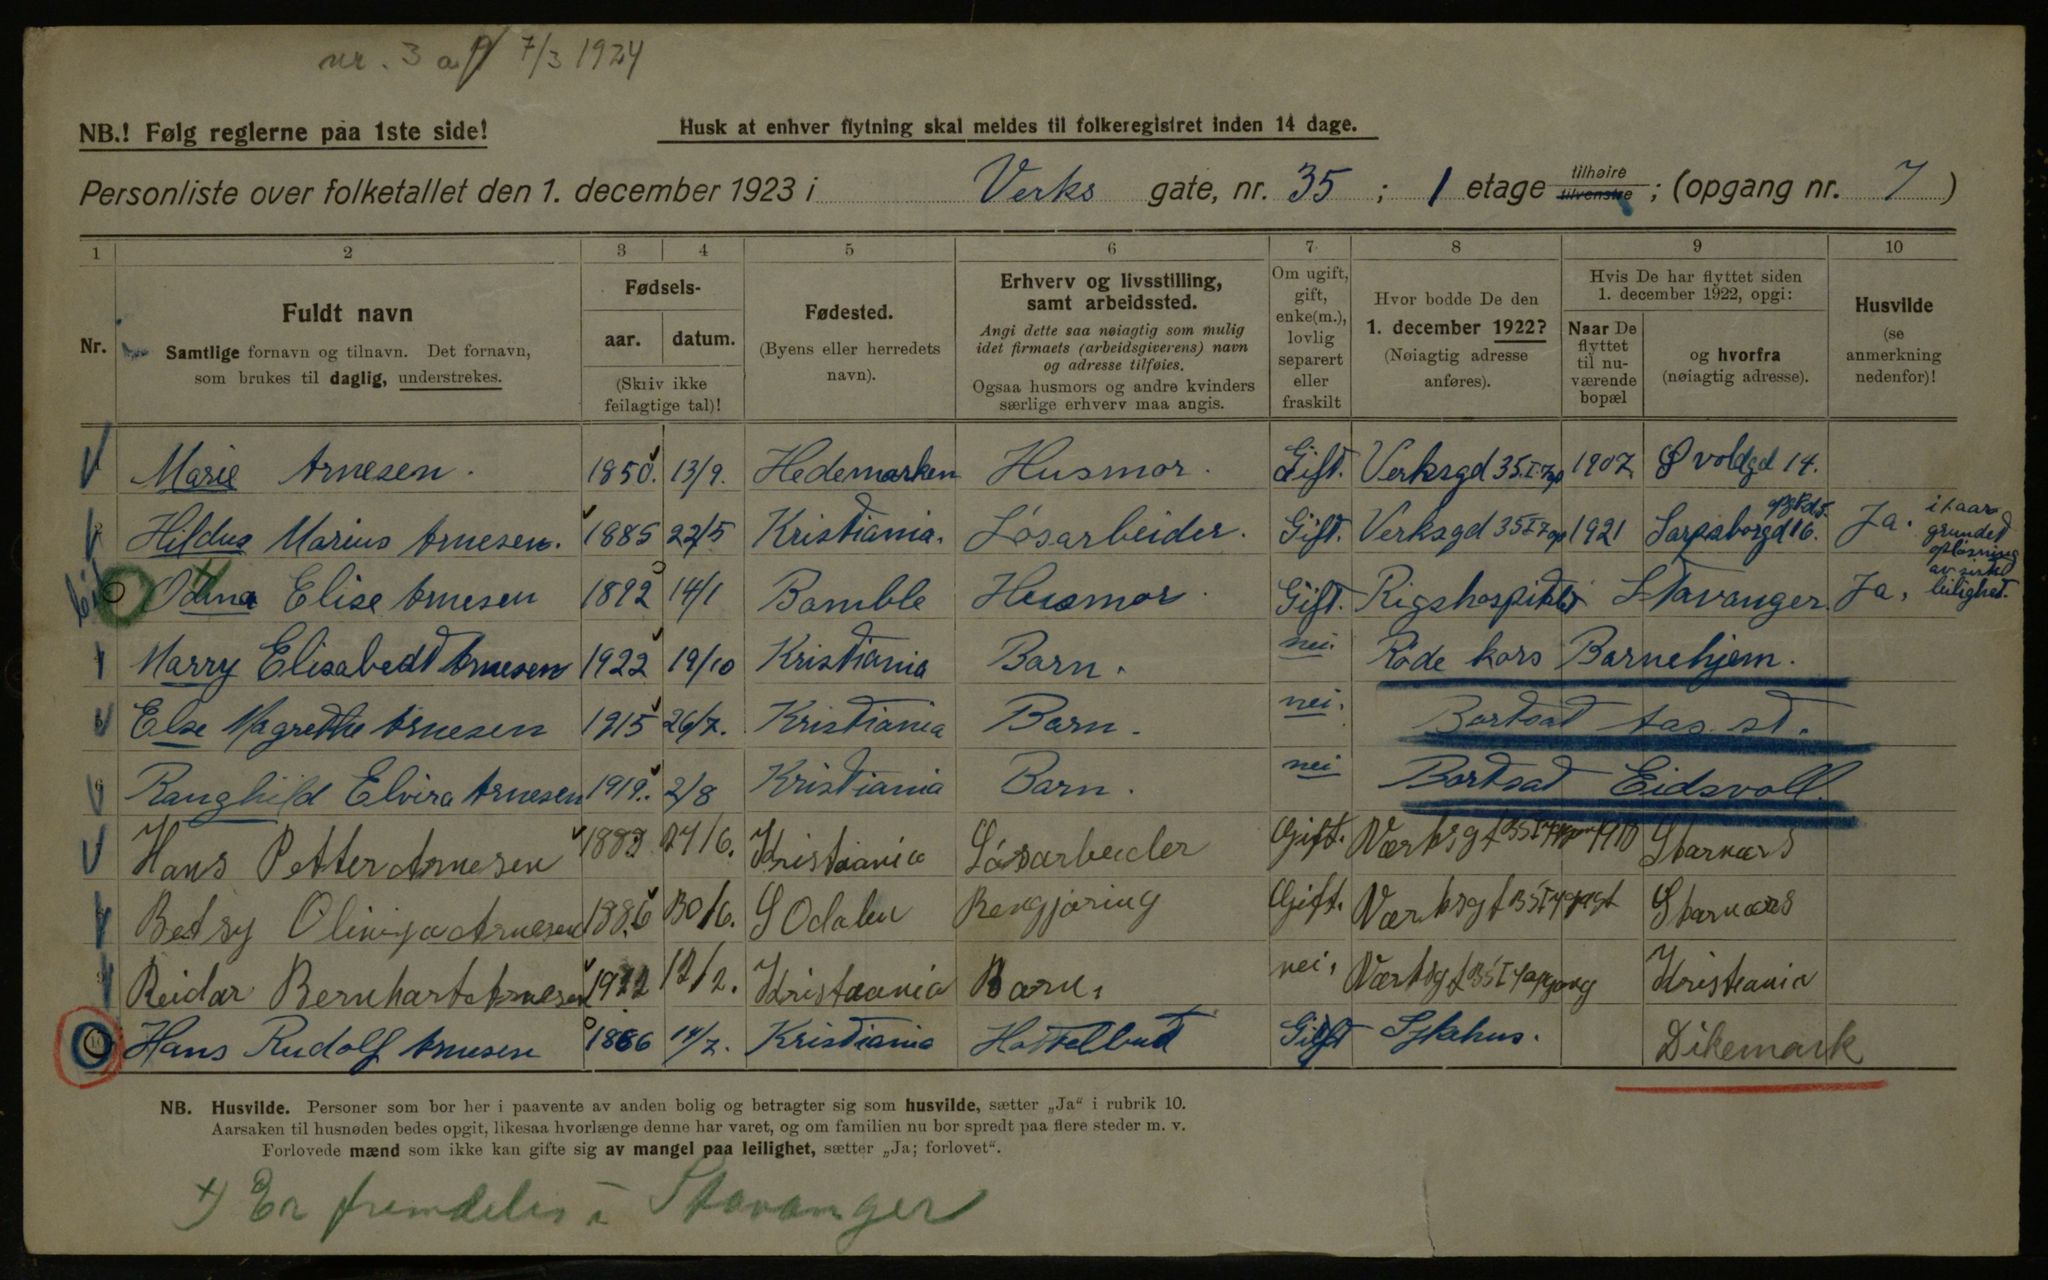 nr. 3 af 7/3 1924
NB.! Følg reglerne paa 1ste side!
Husk at enhver flytning skal meldes til folkeregistret inden 14 dage.
Personliste over folketallet den 1. december 1923 i Verks gate, nr. 35 ; 1 etage tilhøire tilvenstre ; (opgang nr. 7 )
1 2 3 4 5 6 7 8 9 10
Nr.
Fuldt navn
Samtlige fornavn og tilnavn. Det fornavn,
som brukes til daglig, understrekes.
Fødsels-
aar. datum.
(Skriv ikke
feilagtige tal)!
Fødested.
(Byens eller herredets
navn).
Erhverv og livsstilling,
samt arbeidssted.
Angi dette saa nøiagtig som mulig
idet firmaets (arbeidsgiverens) navn
og adresse tilføies.
Ogsaa husmors og andre kvinders
særlige erhverv maa angis.
Om ugift,
gift,
enke(m.),
lovlig
separert
eller
fraskilt
Hvor bodde De den
1. december 1922?
(Nøiagtig adresse
anføres).
Hvis De har flyttet siden
1. december 1922, opgi:
Naar De
flyttet
til nu-
værende
bopæl
og hvorfra
(nøiagtig adresse).
Husvilde
(se
anmerkning
nedenfor)!
Marie Arnesen. 1850. 13/9. Hedemarken Husmor. Gift. Verksgd 35.I.7op 1907 Ø voldgd 14.
Hildus Marius Arnesen. 1885 22/5 Kristiania. Løsarbeider. Gift. Verksgd 35I7op 1921 Sarpsborgd 16. Ja. i 1 aar grundet opløsning av leilighet.
Odina Elise Arnesen 1892 14/1 Bamble Husmor. Gift. Rigshospitalet Stavanger. Ja.
Marry Elisabedt Arnesen 1922 19/10 Kristiania Barn. nei. Røde kors Barnehjem.
Else Magrethe Arnesen 1915 26/7. Kristiania Barn. nei. Bortsat
Ranghild Elvira Arnesen 1919. 2/8 Kristiania Barn. nei Bortsat Eidsvoll.
Hans Petter Arnesen 1883 24/6. Kristiania Løsarbeider Gift. Værksgt 35I
Betsy Olivija Arnesen 1886 30/6. S Odalen Rengjøring Gift. Værksgt 35I
Reidar Bernhart Arnesen 1922 12/2. Kristiania Barn. nei, Værksgt 35I 7 opgang Kristiania
10 Hans Rudolf Arnesen 1886 14/7. Kristiania Hottelbud Gift Sykehus. Dikemark
NB. Husvilde. Personer som bor her i paavente av anden bolig og betragter sig som husvilde, sætter „Ja“ i rubrik 10.
Aarsaken til husnøden bedes opgit, likesaa hvorlænge denne har varet, og om familien nu bor spredt paa flere steder m. v.
Forlovede mænd som ikke kan gifte sig av mangel paa leilighet, sætter „Ja; forlovet“.
+) Er fremdeles i Stavanger